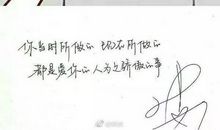 你当时所做的 现在所做的
都是爱你的人为之骄傲的事